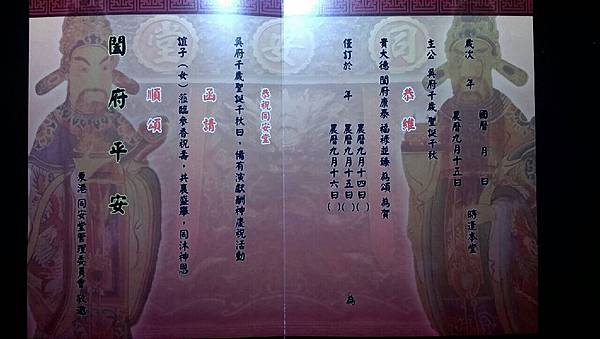 同安堂
歲次 年 國曆 月 日
農曆九月十五日 時逢本堂
主公 吳府千歲聖誕千秋
恭維
貴大德 閤府康泰 福祿並臻 為頌 為賀
農曆九月十四日( )
僅訂於 年 農曆九月十五日( ) 為
農曆九月十六日( )
恭祝同安堂
吳府千歲聖誕千秋日,備有演獻酬神慶祝活動
函請
誼子(女)蒞臨參香祝壽,共襄盛舉,同沐神恩
順頌
閤府平安
東港 同安堂管理委員會 敬邀